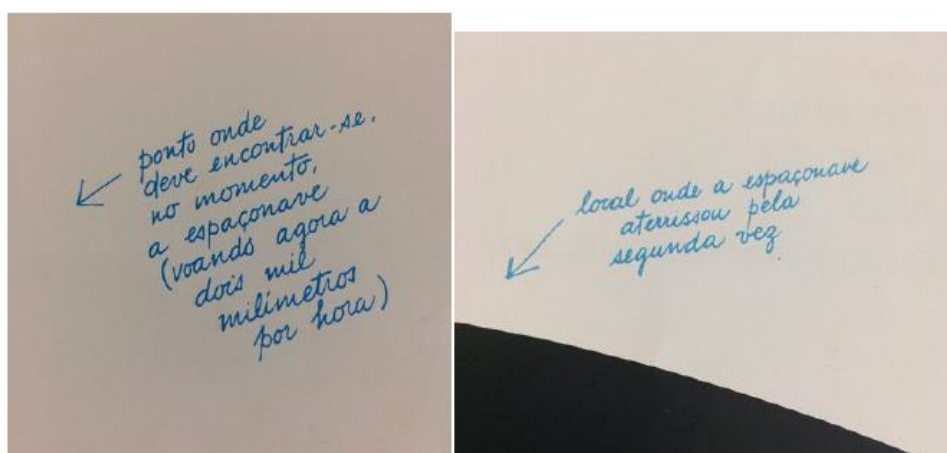 ponto onde
deve encontrar-se,
no momento,
a espaçonave
(voando agora a
dois mil
milímetros
por hora)
local onde a espaçonave
aterrissou pela
segunda vez